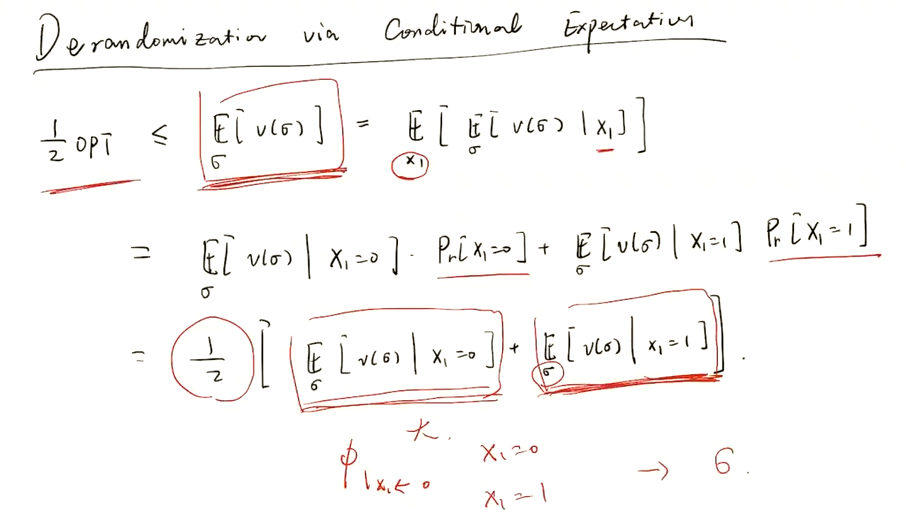 Derandomization via Conditional Expectation
1/2 OPT ≤ 𝔼_σ[v(σ)] = 𝔼_{x₁}[𝔼_σ[v(σ) | x₁]]
= 𝔼_σ[v(σ) | x₁=0] · Pr[x₁=0] + 𝔼_σ[v(σ) | x₁=1] Pr[x₁=1]
= 1/2 [𝔼_σ[v(σ) | x₁=0] + 𝔼_σ[v(σ) | x₁=1]].
x₁=0
ϕ|x₁←0 → σ.
x₁=1